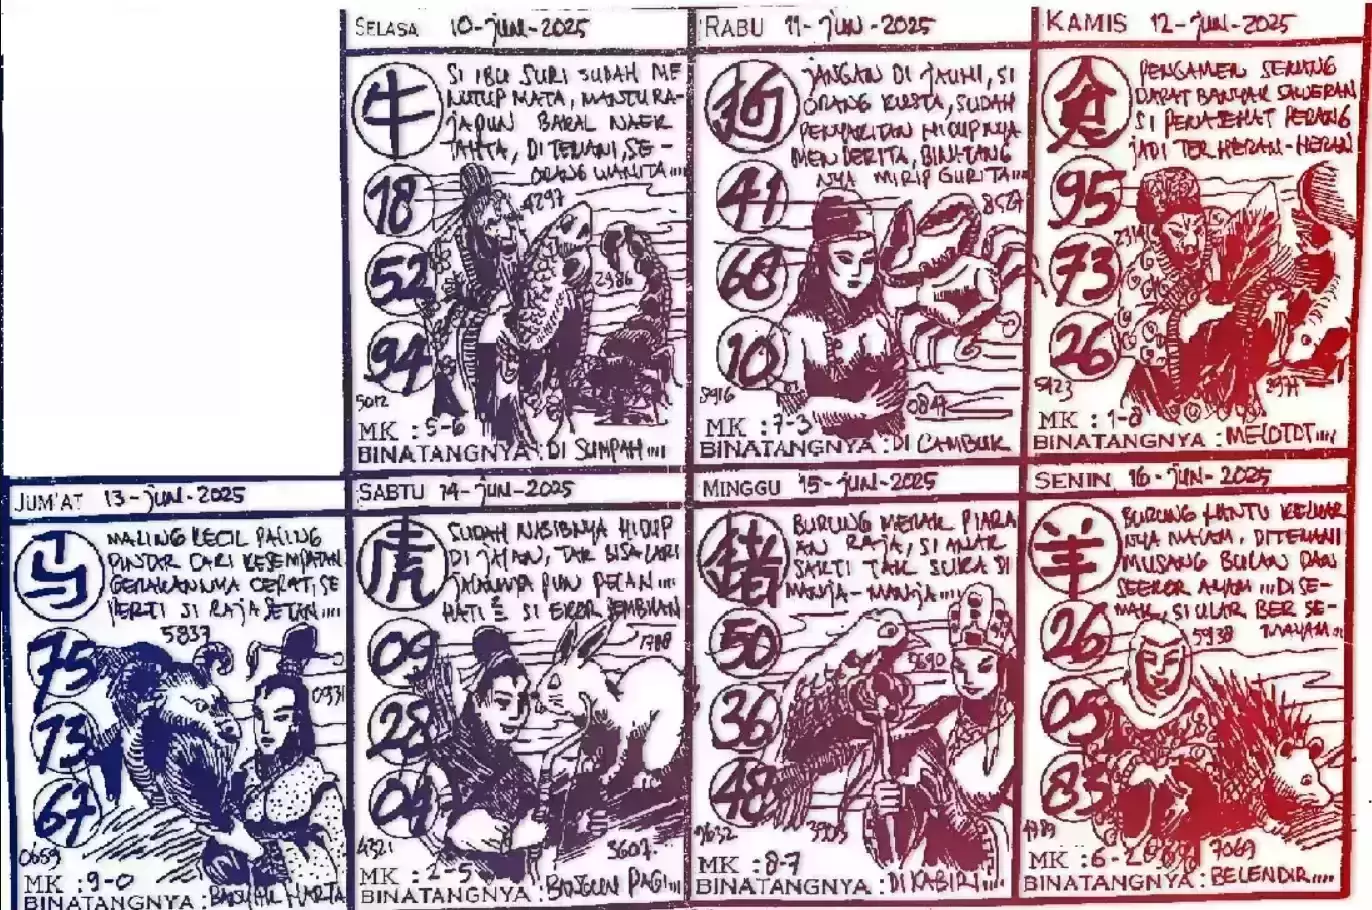 SELASA 10-JUNI-2025
牛
SI IBU SURI SUDAH ME
NUTUP MATA, MANTU RA-
JAPUN BAKAL NAEK
TAHTA, DITEMANI, SE-
ORANG WANITA....
18
52
94
4297
2386
5012
MK : 5-6
BINATANGNYA : DI SUMPAH....
RABU 11-JUN-2025
狗
JANGAN DI JAUHI, SI
ORANG KUSTA, SUDAH
PENYAKITAN HIDUPNYA
MENDERITA, BINATANG
NYA MIRIP GURITA....
41
68
10
8527
3916
0847
MK : 7-3
BINATANGNYA : DI CAMBUK
KAMIS 12-JUN-2025
PENGAMEN SENANG
DAPAT BANYAK SAWERAN
SI PENASEHAT PERANG
JADI TERHERAN-HERAN
95
73
26
MK : 1-8
BINATANGNYA : MELOTOT....
JUM'AT 13-JUN-2025
马
MALING KECIL PALING
PINTAR CARI KESEMPATAN
GERAKANNYA CEPAT, SE
PERTI SI RAJA SETAN....
5837
75
73
67
0931
0659
MK : 9-0
BINATANGNYA : BANYAK HARTA
SABTU 14-JUN-2025
虎
SUDAH NASIBNYA HIDUP
DI JALAN, TAK BISA LARI
JALANNYA PUN PELAN....
HATI² SI EKOR SEMBILAN
09
28
04
1788
4321
3607
MK : 2-5
BINATANGNYA : BANGUN PAGI....
MINGGU 15-JUN-2025
猪
BURUNG MERAK PIARA
AN RAJA, SI ANAK
SAKTI TAK SUKA DI
MANJA-MANJA....
50
36
48
5690
9632
3909
MK : 8-7
BINATANGNYA : DIKABIRI....
SENIN 16-JUN-2025
羊
BURUNG HANTU KELUAR
NYA MALAM, DITEMANI
MUSANG BULAN DAN
SEEKOR AYAM ...DISE-
MAK, SI ULAR BERSE-
MAYAM..
26
05
83
5938
4789
7069
MK : 6-2
BINATANGNYA : BELENDIR....